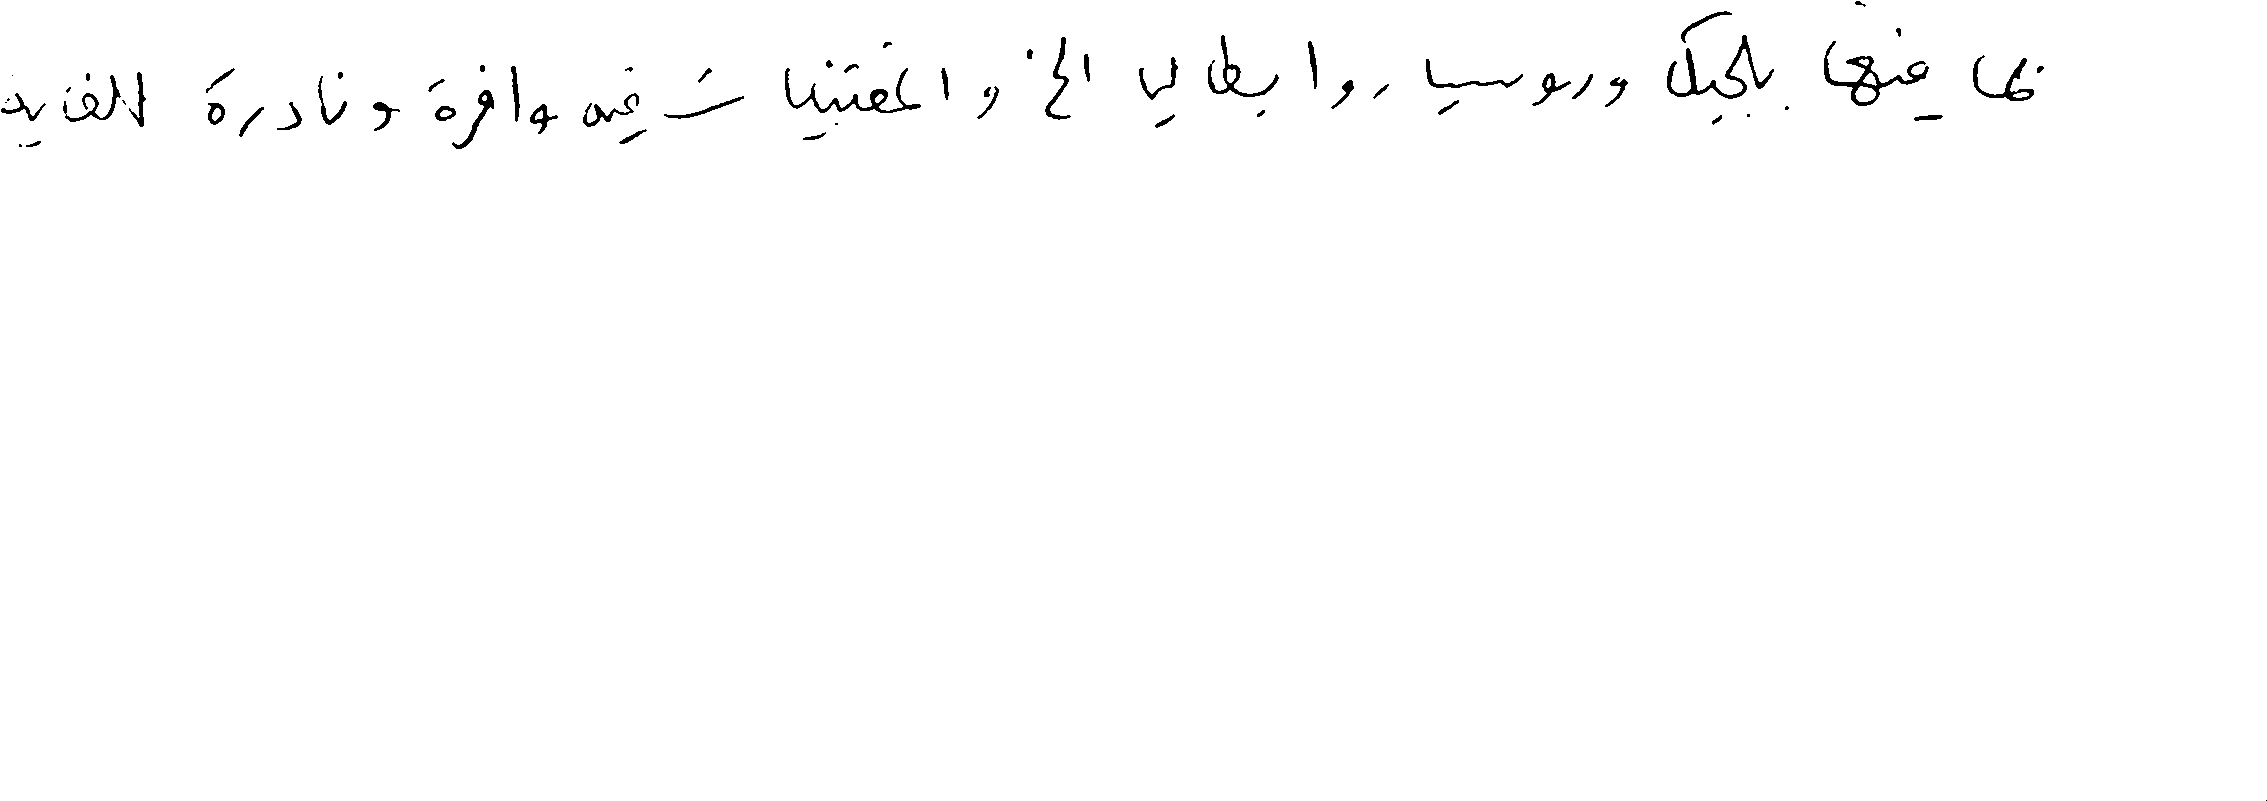 بما فيها بلجيكا وروسيا، وايطاليا الخ. والمقتنيات فيه وافرة ونادرة للغاية